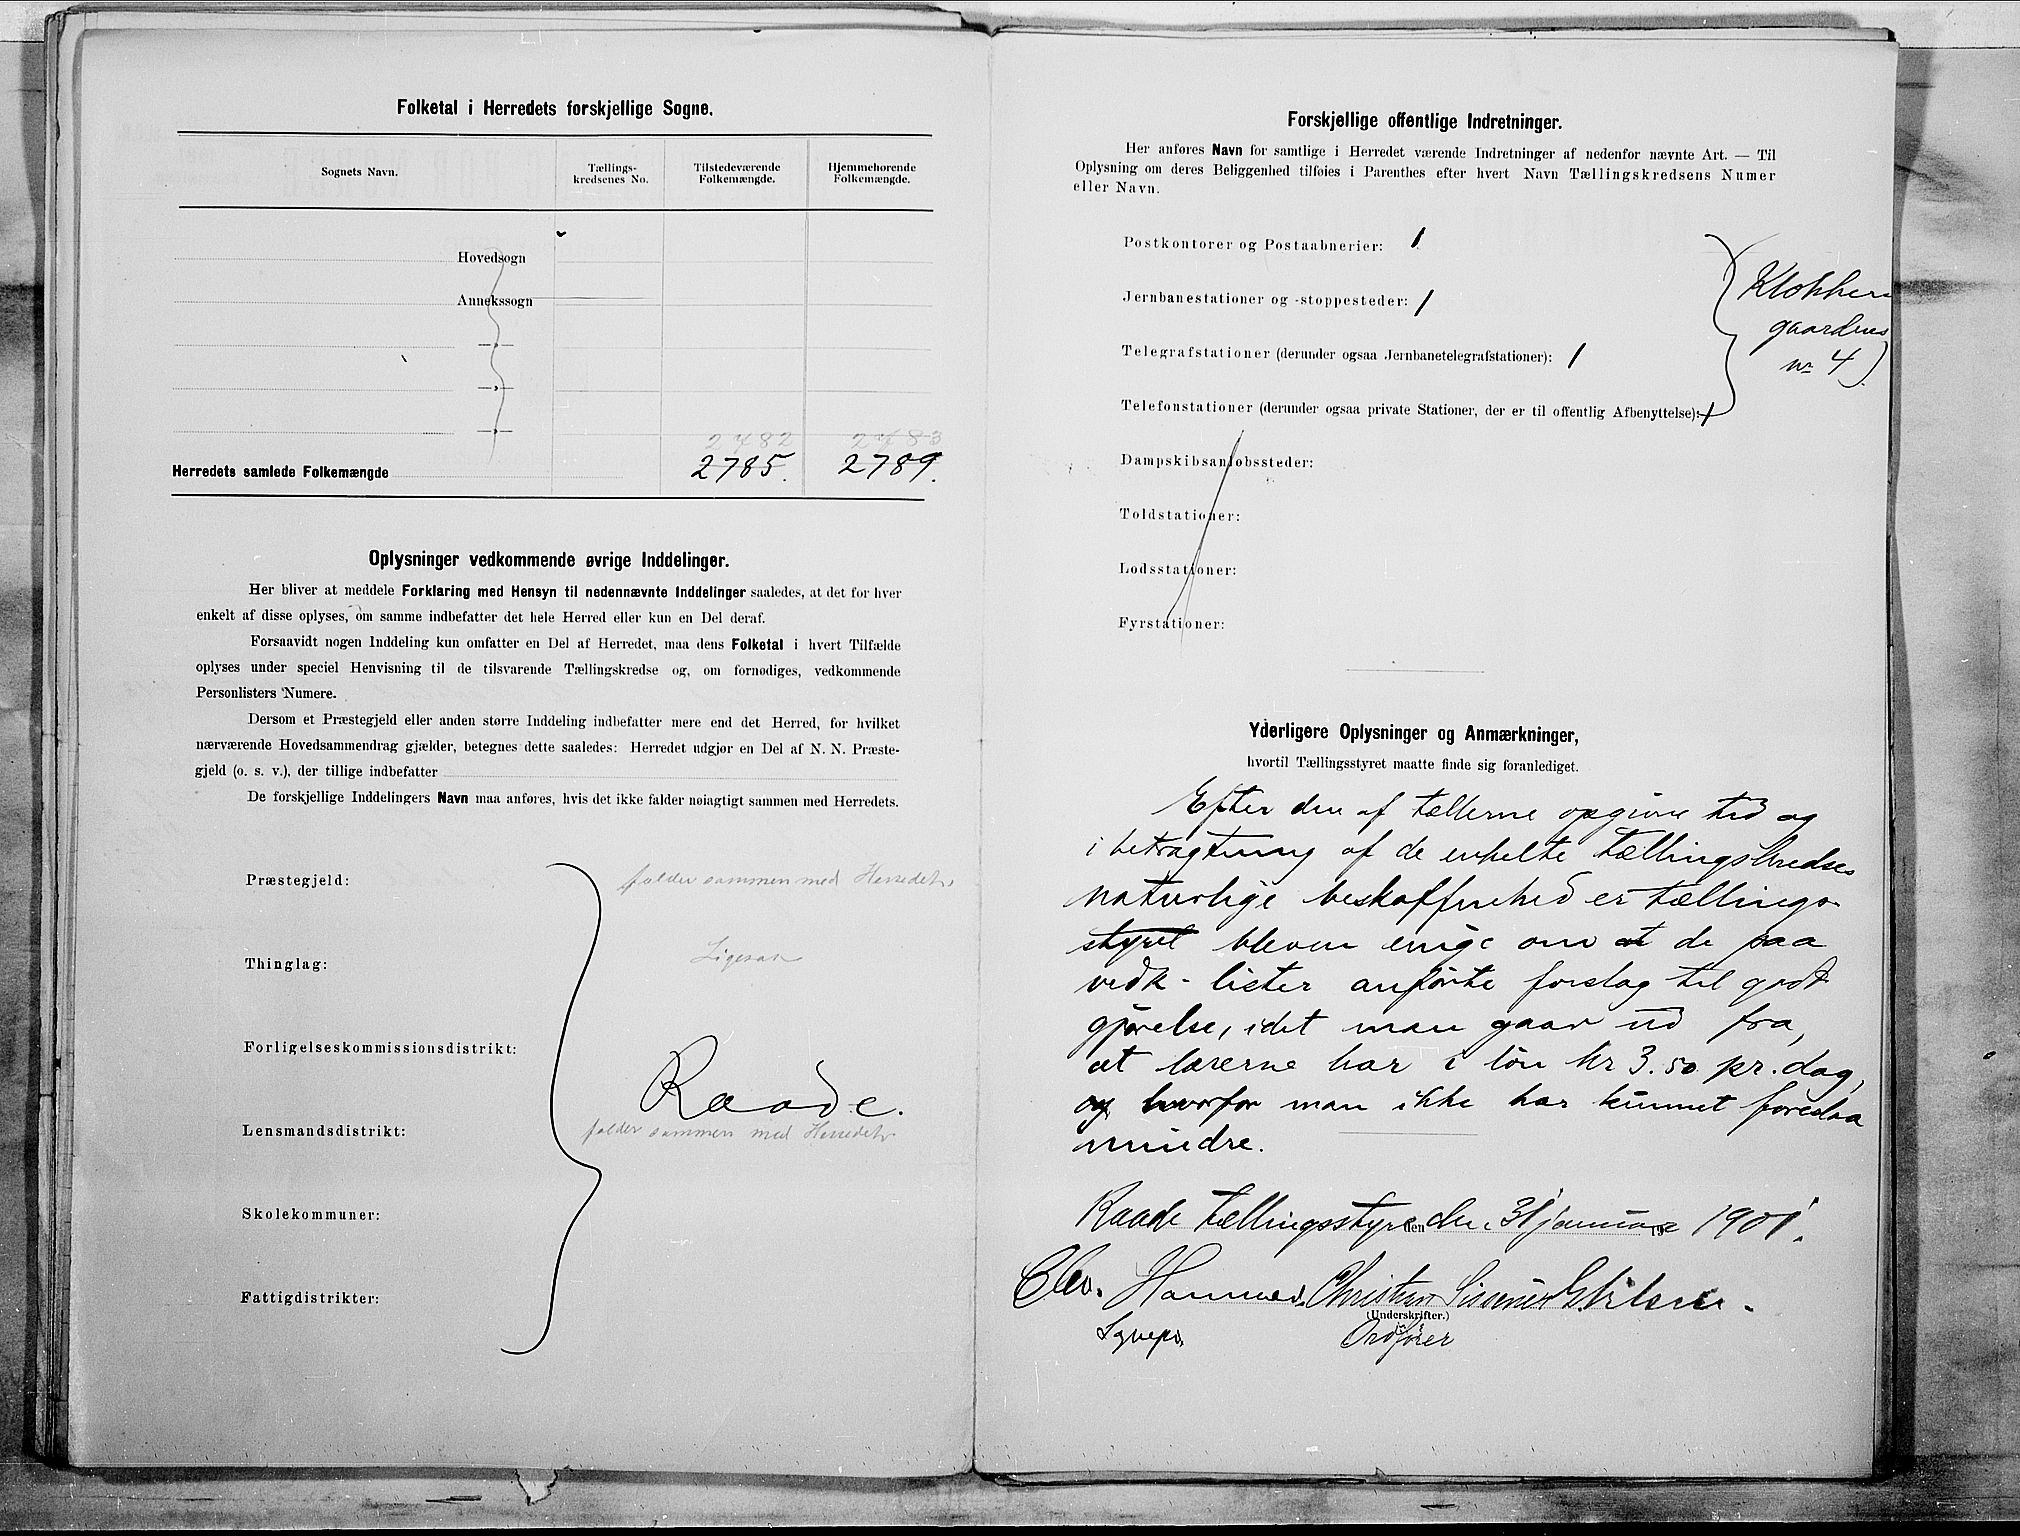 Folketal i Herredets forskjellige Sogne.
Sognets Navn.
Tællings-
kredsenes No.
Tilstedeværende
Folkemængde.
Hjemmehørende
Folkemængde.
Hovedsogn
Annekssogn
—„—
—„—
—„—
2782 2783
Herredets samlede Folkemængde 2785. 2789.
Oplysninger vedkommende øvrige Inddelinger.
Her bliver at meddele Forklaring med Hensyn til nedennævnte Inddelinger saaledes, at det for hver
enkelt af disse oplyses, om samme indbefatter det hele Herred eller kun en Del deraf.
Forsaavidt nogen Inddeling kun omfatter en Del af Herredet, maa dens Folketal i hvert Tilfælde
oplyses under speciel Henvisning til de tilsvarende Tællingskredse og, om fornødiges, vedkommende
Personlisters Numere.
Dersom et Præstegjeld eller anden større Inddeling indbefatter mere end det Herred, for hvilket
nærværende Hovedsammendrag gjælder, betegnes dette saaledes: Herredet udgjør en Del af N. N. Præste-
gjeld (o. s. v.), der tillige indbefatter
De forskjellige Inddelingers Navn maa anføres, hvis det ikke falder nøiagtigt sammen med Herredets.
Præstegjeld: falder sammen med Herredet.
Thinglag: Ligesaa
Forligelseskommissionsdistrikt:
Raade.
Lensmandsdistrikt: falder sammen med Herredet
Skolekommuner:
Fattigdistrikter:
Forskjellige offentlige Indretninger.
Her anføres Navn for samtlige i Herredet værende Indretninger af nedenfor nævnte Art. — Til
Oplysning om deres Beliggenhed tilføies i Parenthes efter hvert Navn Tællingskredsens Numer
eller Navn.
Postkontorer og Postaabnerier: 1
Jernbanestationer og -stoppesteder: 1
Telegrafstationer (derunder ogsaa Jernbanetelegrafstationer): 1
Telefonstationer (derunder ogsaa private Stationer, der er til offentlig Afbenyttelse): 1
Klokker
gaardens
nr 4)
Dampskibsanløbssteder:
Toldstationer:
Lodsstationer:
Fyrstationer:
Yderligere Oplysninger og Anmærkninger,
hvortil Tællingsstyret maatte finde sig foranlediget.
Efter den af tællerne opgivne tid og
i betragtning af de enkelte tællingskredses
naturlige beskaffenhed er tællings-
styret bleven enige om at de paa
vedk. lister anførte forslag til godt
gjørelse, idet man gaar ud fra,
at lærerne har i løn kr 3.50 pr. dag,
og hvorfor man ikke har kunnet foreslaa
mindre.
Raade tællingsstyre den den 31 januar 19 1901.
Chr. Hammer. Christian Nilsen.
(Underskrifter.)
Sgnepr. Ordfører